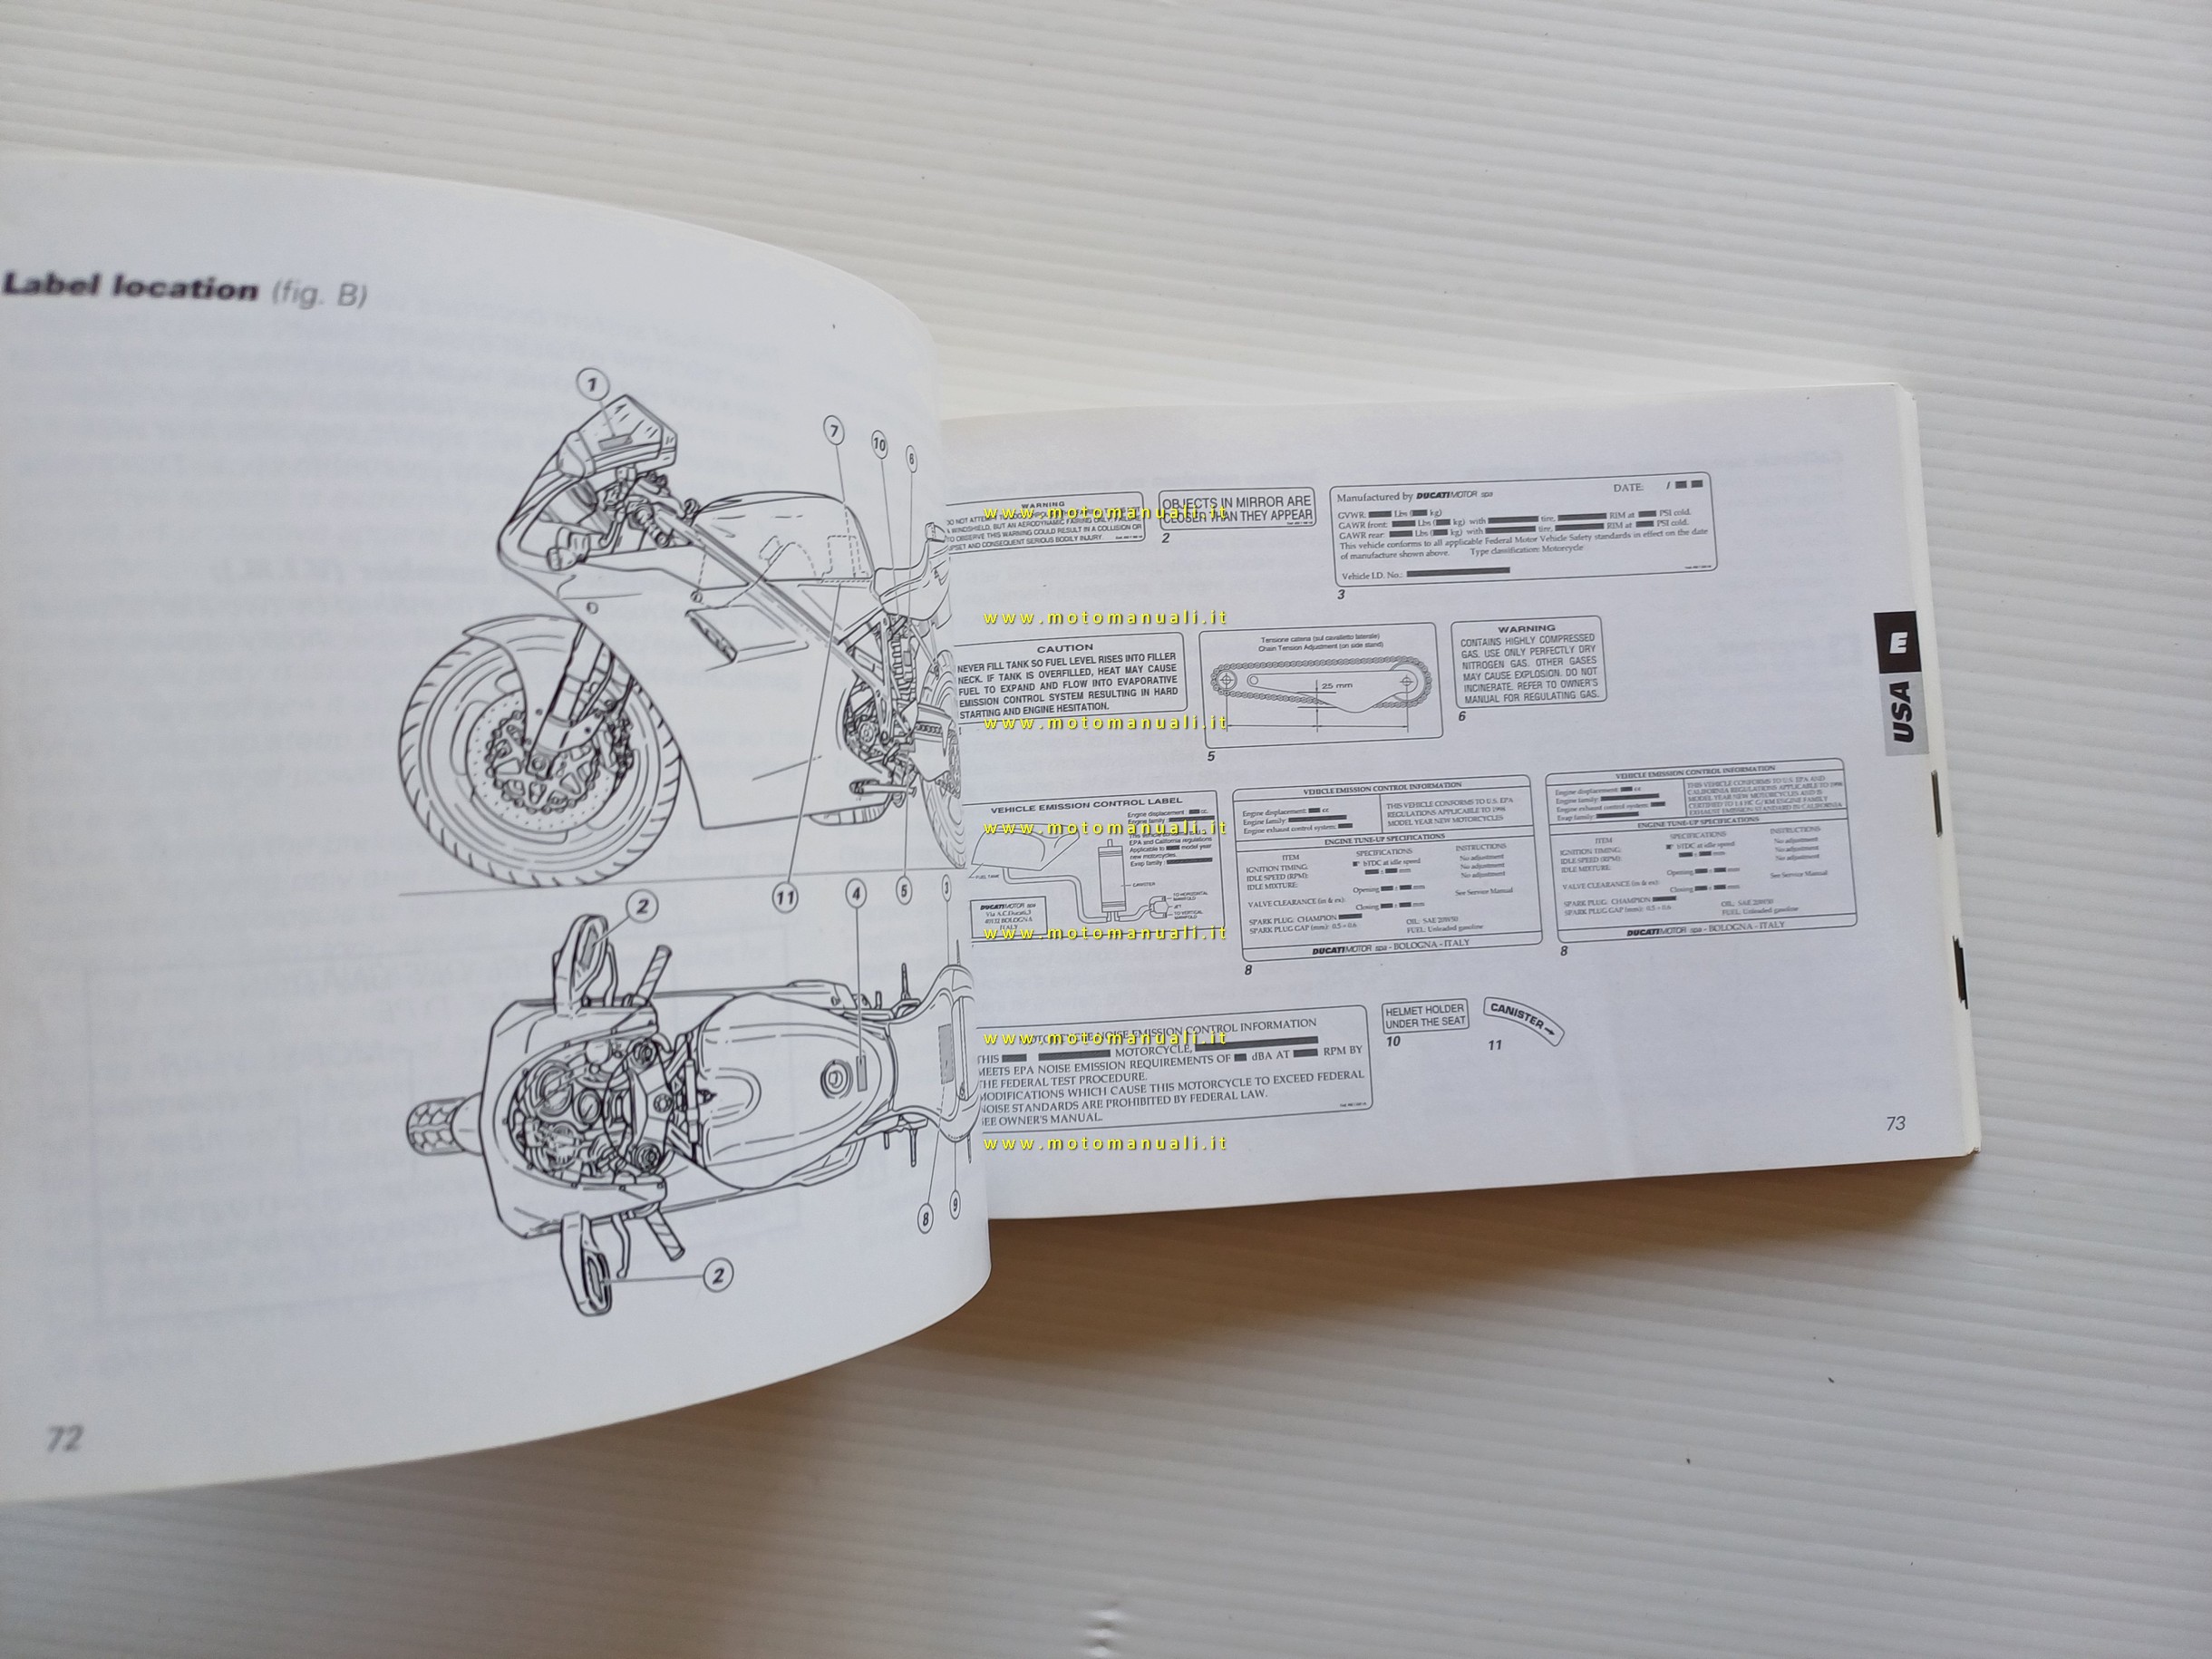 Label location (fig. B)
1
7
10
6
11
5
4
3
2
2
8
9
72
WARNING
A WINDSHIELD, BUT AN AERODYNAMIC FAIRING ONLY. FAILURE
TO OBSERVE THIS WARNING COULD RESULT IN A COLLISION OR
UPSET AND CONSEQUENT SERIOUS BODILY INJURY.
OBJECTS IN MIRROR ARE
CLOSER THAN THEY APPEAR
2
Manufactured by DUCATIMOTOR spa DATE: /
GVWR: Lbs ( kg)
GAWR front: Lbs ( kg) with tire, RIM at PSI cold.
GAWR rear: Lbs ( kg) with tire, RIM at PSI cold.
This vehicle conforms to all applicable Federal Motor Vehicle Safety standards in effect on the date
of manufacture shown above. Type classification: Motorcycle
Vehicle I.D. No.:
3
CAUTION
NEVER FILL TANK SO FUEL LEVEL RISES INTO FILLER
NECK. IF TANK IS OVERFILLED, HEAT MAY CAUSE
FUEL TO EXPAND AND FLOW INTO EVAPORATIVE
EMISSION CONTROL SYSTEM RESULTING IN HARD
STARTING AND ENGINE HESITATION.
Tensione catena (sul cavalletto laterale)
Chain Tension Adjustment (on side stand)
25 mm
5
WARNING
CONTAINS HIGHLY COMPRESSED
GAS. USE ONLY PERFECTLY DRY
NITROGEN GAS. OTHER GASES
MAY CAUSE EXPLOSION. DO NOT
INCINERATE. REFER TO OWNER'S
MANUAL FOR REGULATING GAS.
6
VEHICLE EMISSION CONTROL LABEL
Engine displacement cc.
Engine family
EPA and California regulations
Applicable to model year
new motorcycles.
Evap family :
FUEL TANK
CANISTER
TO HORIZONTAL
MANIFOLD
JET
TO VERTICAL
MANIFOLD
DUCATIMOTOR spa
Via A.C.Ducati,3
40132 BOLOGNA
ITALY
VEHICLE EMISSION CONTROL INFORMATION
Engine displacement: cc
Engine family:
Engine exhaust control system:
THIS VEHICLE CONFORMS TO U.S. EPA
REGULATIONS APPLICABLE TO 1998
MODEL YEAR NEW MOTORCYCLES
ENGINE TUNE-UP SPECIFICATIONS
ITEM SPECIFICATIONS INSTRUCTIONS
IGNITION TIMING: ° bTDC at idle speed No adjustment
IDLE SPEED (RPM): ± mm No adjustment
IDLE MIXTURE: No adjustment
VALVE CLEARANCE (in & ex): Opening ± mm See Service Manual
Closing ± mm
SPARK PLUG: CHAMPION OIL: SAE 20W50
SPARK PLUG GAP (mm): 0.5 ÷ 0.6 FUEL: Unleaded gasoline
DUCATIMOTOR spa - BOLOGNA - ITALY
8
VEHICLE EMISSION CONTROL INFORMATION
Engine displacement: cc
Engine family:
Engine exhaust control system:
Evap family:
THIS VEHICLE CONFORMS TO U.S. EPA AND
CALIFORNIA REGULATIONS APPLICABLE TO 1998
MODEL YEAR NEW MOTORCYCLES AND IS
CERTIFIED TO 1.4 HC G/KM ENGINE FAMILY
EXHAUST EMISSION STANDARD IN CALIFORNIA
ENGINE TUNE-UP SPECIFICATIONS
ITEM SPECIFICATIONS INSTRUCTIONS
IGNITION TIMING: ° bTDC at idle speed No adjustment
IDLE SPEED (RPM): ± mm No adjustment
IDLE MIXTURE: No adjustment
VALVE CLEARANCE (in & ex): Opening ± mm See Service Manual
Closing ± mm
SPARK PLUG: CHAMPION OIL: SAE 20W50
SPARK PLUG GAP (mm): 0.5 ÷ 0.6 FUEL: Unleaded gasoline
DUCATIMOTOR spa - BOLOGNA - ITALY
8
NOISE EMISSION CONTROL INFORMATION
THIS MOTORCYCLE,
MEETS EPA NOISE EMISSION REQUIREMENTS OF dBA AT RPM BY
THE FEDERAL TEST PROCEDURE.
MODIFICATIONS WHICH CAUSE THIS MOTORCYCLE TO EXCEED FEDERAL
NOISE STANDARDS ARE PROHIBITED BY FEDERAL LAW.
SEE OWNER'S MANUAL.
HELMET HOLDER
UNDER THE SEAT
10
CANISTER
11
E
USA
73
www.motomanuali.it
www.motomanuali.it
www.motomanuali.it
www.motomanuali.it
www.motomanuali.it
www.motomanuali.it
www.motomanuali.it